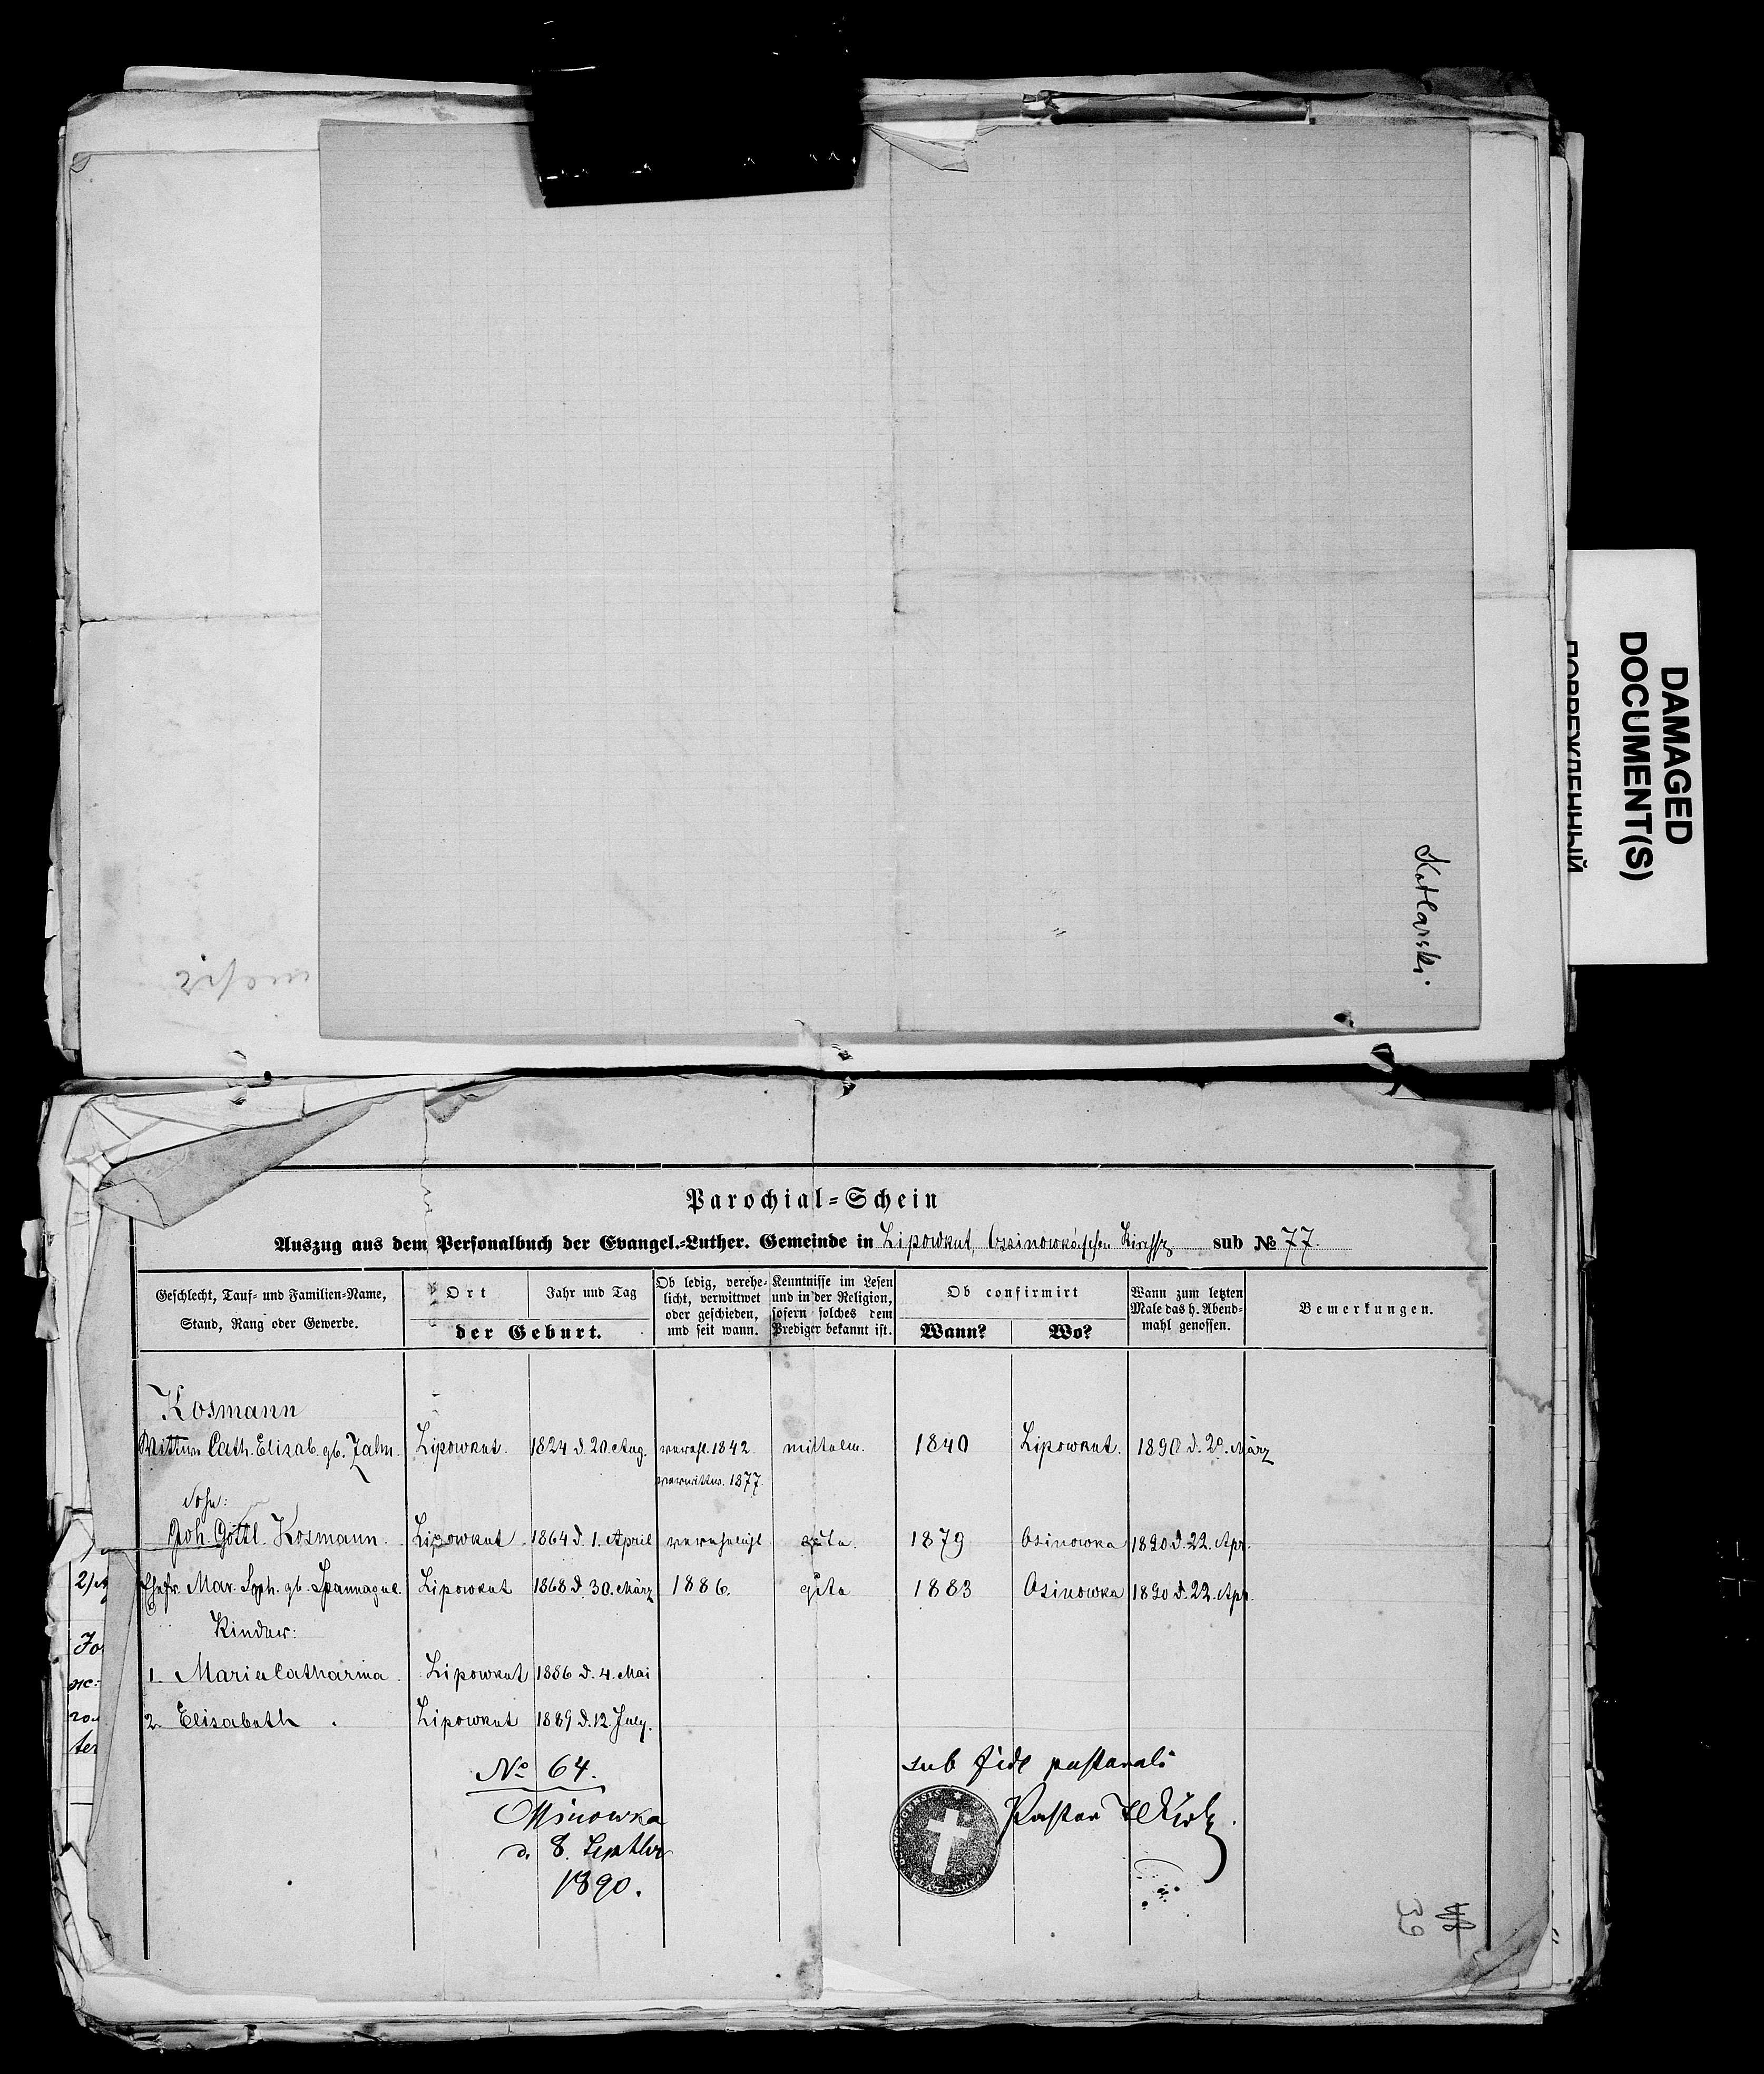 DAMAGED
DOCUMENT(S)
ПОВРЕЖДЕННЫЙ
Katlarski.
Parochial-Schein
Auszug aus dem Personalbuch der Evangel.-Luther. Gemeinde in Lipowkut, Ossinowka'schen Kirchsp. sub № 77.
Geschlecht, Tauf- und Familien-Name, Stand, Rang oder Gewerbe.
Ort
Jahr und Tag
der Geburt.
Ob ledig, verehelicht, verwittwet oder geschieden, und seit wann.
Kenntnisse im Lesen und in der Religion, sofern solches dem Prediger bekannt ist.
Ob confirmirt
Wann?
Wo?
Wann zum letzten Male das h. Abendmahl genossen.
Bemerkungen.
Kosmann
Wittwe Cath. Elisab. gb. Zahn. Lipowkut. 1824 d. 20. Aug. vereh. 1842 mittelm. 1840 Lipowkut. 1890 d. 20. März
verwittw. 1877.
Sohn:
Joh. Gottl. Kosmann. Lipowkut 1864 d. 1. April verehelicht gute. 1879 Osinowka 1890 d. 22. Apr.
Ehefr. Mar. Soph. gb. Spannagel. Lipowkut 1868 d. 30. März 1886. gute 1883 Osinowka 1890 d. 22. Apr.
Kinder:
1. Maria Catharina. Lipowkut 1886 d. 4. Mai
2. Elisabeth. Lipowkut 1889 d. 12. July.
№ 64.
Ossinowka
d. 8. Septber
1890.
sub fide pastorali
Pastor
39